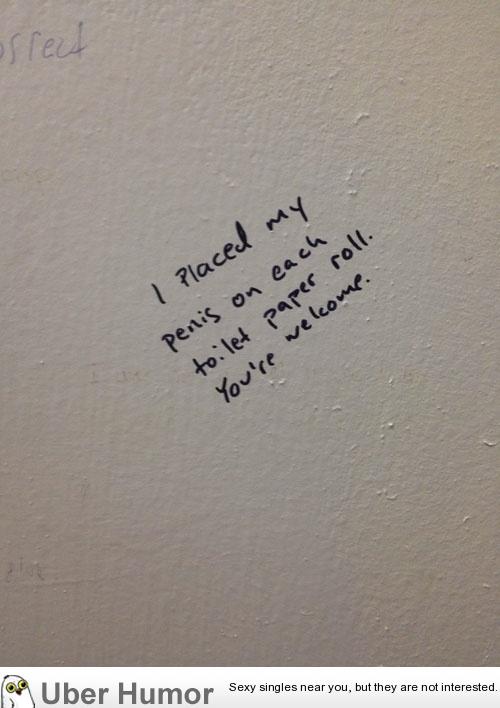 I Placed my
penis on each
toilet paper roll.
You're welcome.
Uber Humor
Sexy singles near you, but they are not interested.